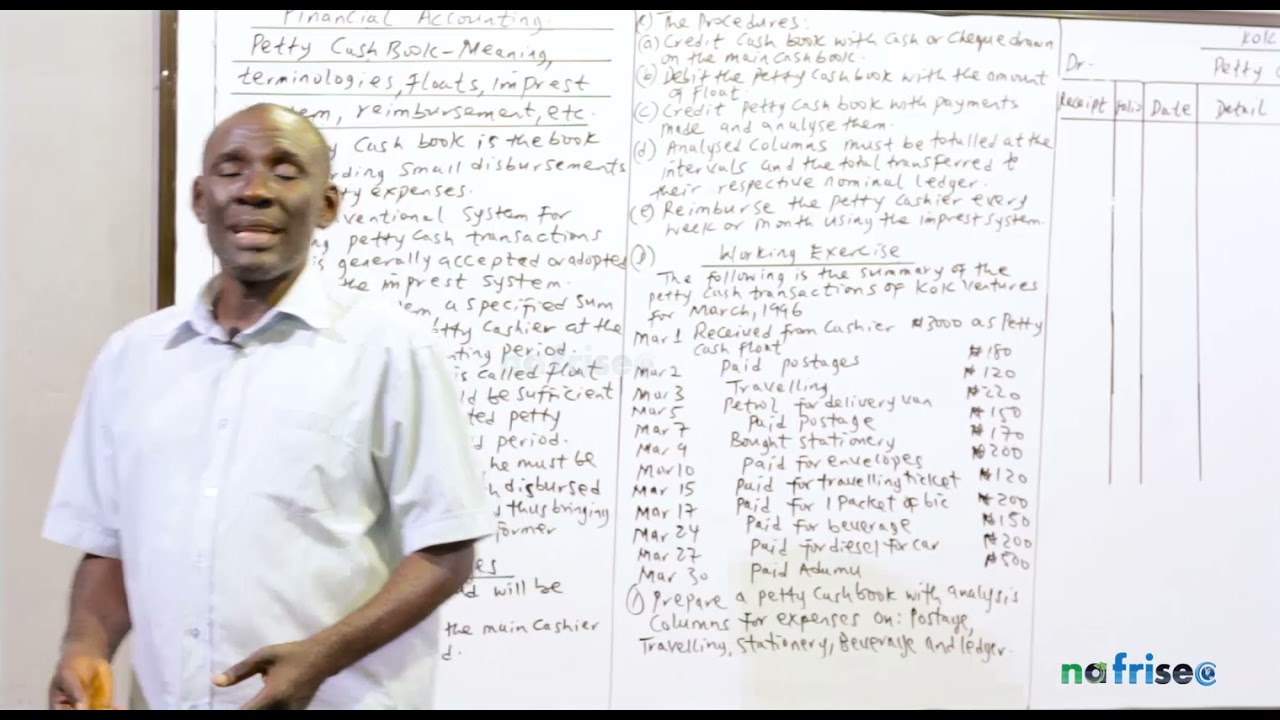 Financial Accounting.
Petty Cash Book - Meaning,
terminologies, floats, imprest
reimbursement, etc.
Cash book is the book
small disbursements
expenses.
system for
petty cash transactions
is generally accepted or adopted
the imprest system.
a specified sum
Petty Cashier at the
period.
is called float
be sufficient
petty
period.
he must be
disbursed
thus bringing
former
will be
the main Cashier
c) The Procedures:
(a) Credit Cash book with Cash or Cheque drawn
on the main cashbook.
(b) Debit the Petty Cashbook with the amount
of float.
(c) Credit Petty Cash book with payments
made and analyse them.
(d) Analysed Columns must be totalled at the
intervals and the total transferred to
their respective nominal ledger.
(e) Reimburse the petty cashier every
week or month using the imprest system.
(D) Working Exercise
The following is the summary of the
petty cash transactions of Kolk Ventures
for March, 1996
Mar 1 Received from Cashier ₦3000 as Petty
Cash float
Mar 2 Paid postages ₦180
Mar 3 Travelling ₦120
Mar 5 Petrol for delivery van ₦220
Mar 7 Paid postage ₦150
Mar 9 Bought stationery ₦170
Mar 10 Paid for envelopes ₦200
Mar 15 Paid for travelling ticket ₦120
Mar 17 Paid for 1 Packet of bic ₦200
Mar 24 Paid for beverage ₦150
Mar 27 Paid for diesel for car ₦200
Mar 30 Paid Adamu ₦500
Prepare a petty cashbook with analysis
Columns for expenses on: Postage,
Travelling, Stationery, Beverage and ledger.
Kolk
Dr. Petty
Receipt Folio Date Detail
nafrisec
nafrisec